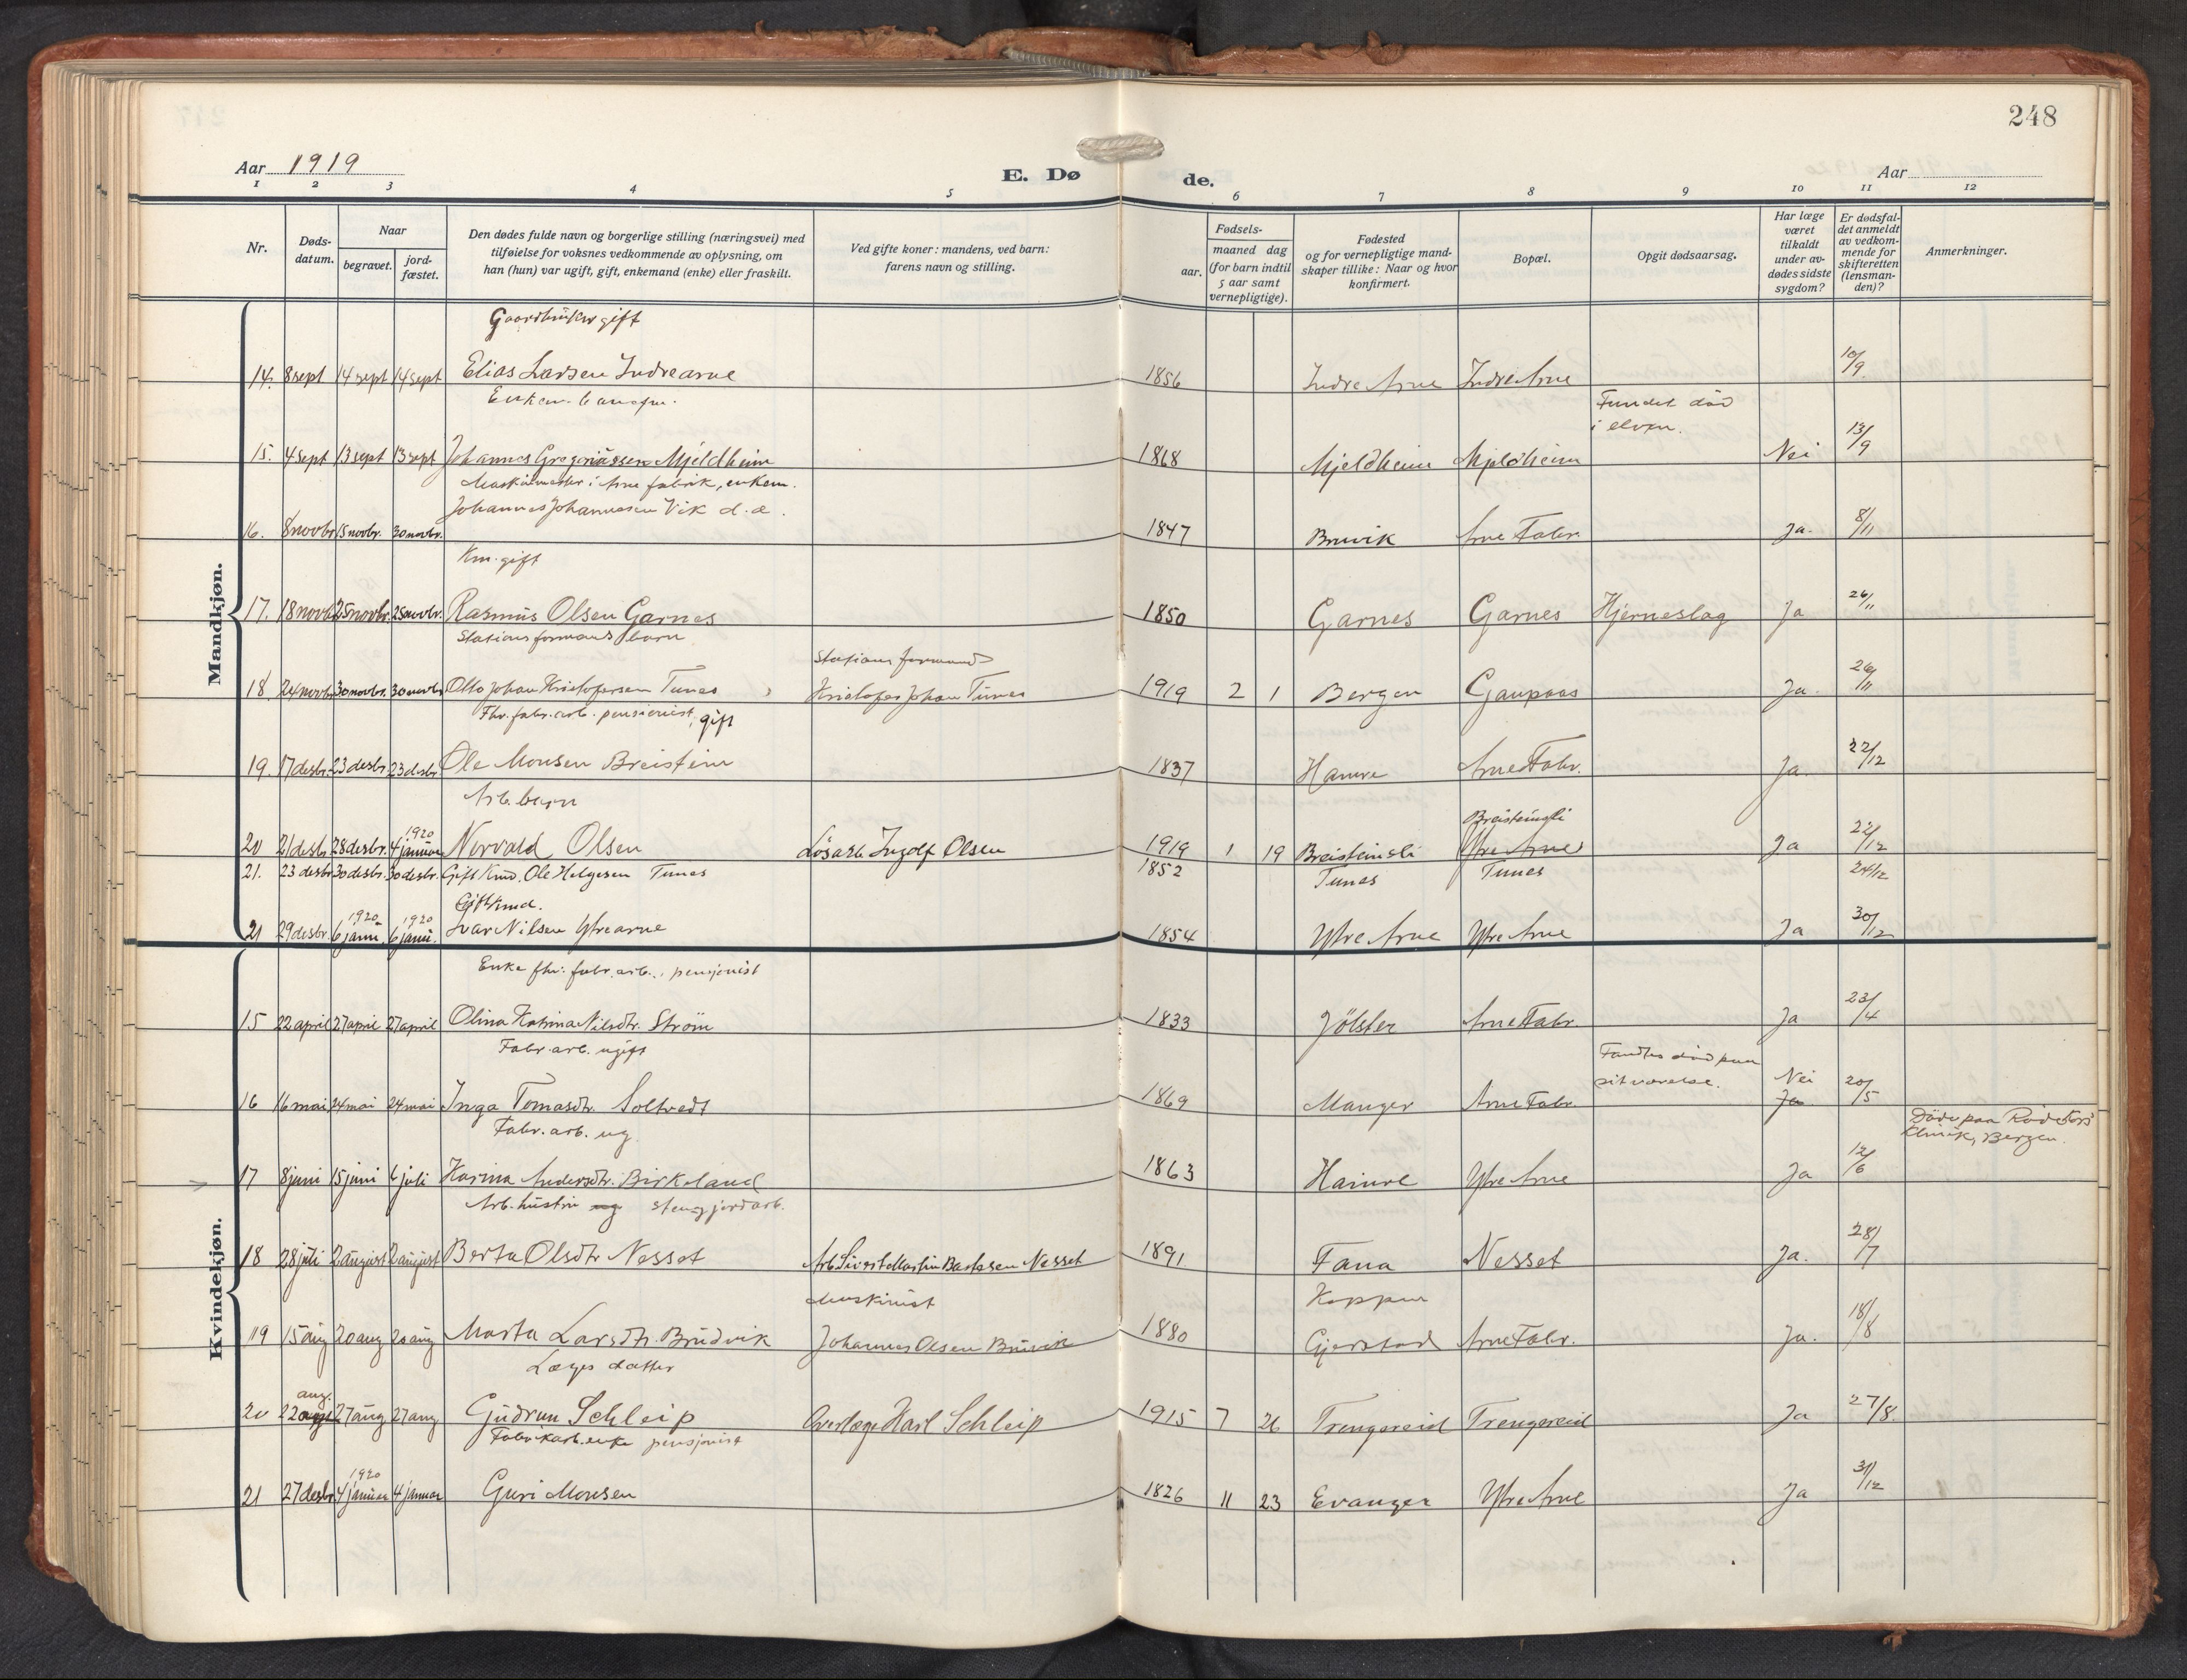 248
Aar 1919
E. Dø
de.
Aar
1 2 3 4 5 6 7 8 9 10 11 12
Nr.
Døds-
datum.
Naar
begravet.
jord-
fæstet.
Den dødes fulde navn og borgerlige stilling (næringsvei) med
tilføielse for voksnes vedkommende av oplysning, om
han (hun) var ugift, gift, enkemand (enke) eller fraskilt.
Ved gifte koner: mandens, ved barn:
farens navn og stilling.
Fødsels-
aar.
maaned dag
(for barn indtil
5 aar samt
vernepligtige).
Fødested
og for vernepligtige mand-
skaper tillike: Naar og hvor
konfirmert.
Bopæl.
Opgit dødsaarsag.
Har læge
været
tilkaldt
under av-
dødes sidste
sygdom?
Er dødsfal-
det anmeldt
av vedkom-
mende for
skifteretten
(lensman-
den)?
Anmerkninger.
Mandkjøn.
Gaardbruker gift
14. 8 sept 14 sept 14 sept Elias Larsen Indrearne 1856 Indre Arne Indre Arne 10/9
Fundet død
i elven.
15. 4 sept 13 sept 13 sept Johannes Gregoriussen Mjeldheim 1868 Mjeldheim Mjeldheim Nei 13/9
Maskinmester i Arne fabrik, enkem.
Johannes Johannesen Vik d.æ.
16. 8 novbr 15 novbr. 30 novbr. 1847 Bruvik Arne Fabr. Ja. 8/11
Km. gift
17. 18 novb 25 novbr. 25 novbr. Rasmus Olsen Garnes 1850 Garnes Garnes Hjerneslag Ja 26/11
Stationsformands barn
Stationsformand
18. 24 novbr 30 novbr. 30 novbr Otto Johan Kristofersen Tunes Kristofer Johan Tunes 1919 2 1 Bergen Gaupaas Ja. 26/11
Fhv. fabr. arb. pensionist, gift
19. 17 desbr. 23 desbr 23 desbr Ole Monsen Breistein 1837 Hamre Arne Fabr. Ja. 22/12
Arb. barn
Breisteinsli
1920
20 21 desbr 28 desbr. 4 januar Norvald Olsen Løsarb Ingolf Olsen 1919 1 19 Breisteinsli Ytre Arne Ja 22/12
21. 23 desbr 30 desbr. 30 desbr. Gift Kmd. Ole Helgesen Tunes 1852 Tunes Tunes 24/12
Gift Kmd.
1920 1920
21 29 desbr 6 janu. 6 janu. Ivar Nilsen Ytrearne 1854 Ytre Arne Ytre Arne Ja 30/12
Kvindekjøn.
Enke fhv. fabr. arb., pensjonist
15 22 april 27 april 27 april Olina Katrina Nilsdtr. Strøm 1833 Jølster Arne Fabr. Ja 23/4
Fabr. arb. ugift
Fandtes død paa
sit værelse.
Nei
16 16 mai 24 mai 24 mai Inga Tomasdtr. Soltvedt 1869 Manger Arne Fabr. Ja 20/5
Fabr. arb. ug
Døde paa Røde Kors'
Klinik, Bergen.
17 8 juni 15 juni 6 juli Karina Andersdtr. Birkeland 1863 Hamre Ytre Arne Ja 12/6
Arb. hustru sten og jordarb.
18 28 juli 2 august 2 august Berta Olsdtr Nesset Arb. Sivert Martin Nesset 1891 Fana Nesset Ja. 28/7
Maskinist
19 15 aug 20 aug 20 aug Marta Larsdtr. Brudvik Johannes Olsen Bruvik 1880 Gjerstad Arne Fabr. Ja. 18/8
Læges datter
aug.
20 22 27 aug 27 aug Gudrun Schleip Overlæge Karl Schleip 1915 7 26 Trengereid Trengereid Ja 27/8.
Fabrikarb. enke pensjonist
1920
21 27 desbr 4 januar 4 januar Guri Monsen 1826 11 23 Evanger Ytre Arne Ja 31/12